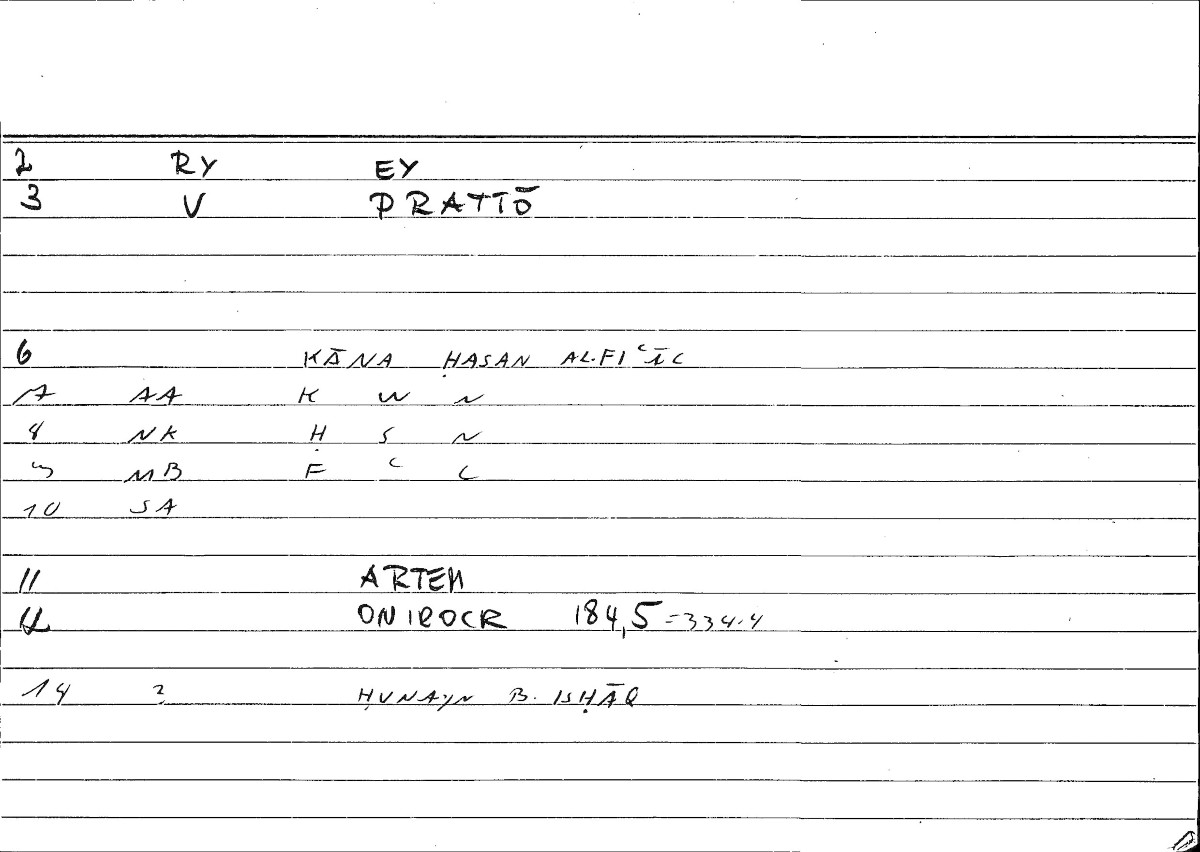 2 RY EY
3 V PRATTŌ
6 KĀNA ḤASAN AL-FIʿĪL
7 AA K W N
8 NK Ḥ S N
9 MB F ʿ L
10 SA
11 ARTEM
12 ONIROCR 184,5 = 334.4
14 2 ḤUNAYN B. ISḤĀQ